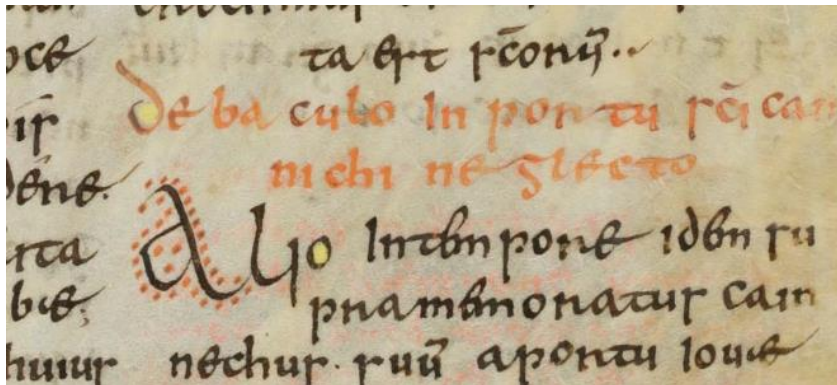 ta est sc̄orū..
De baculo in portu sc̄i cain
nichi neglecto
Alio intempore idem su
pramemoratus cain
nechus suū aportu iouae